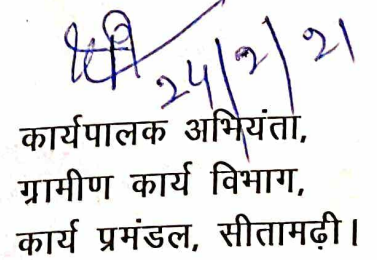 24/2/21
कार्यपालक अभियंता,
ग्रामीण कार्य विभाग,
कार्य प्रमंडल, सीतामढ़ी।